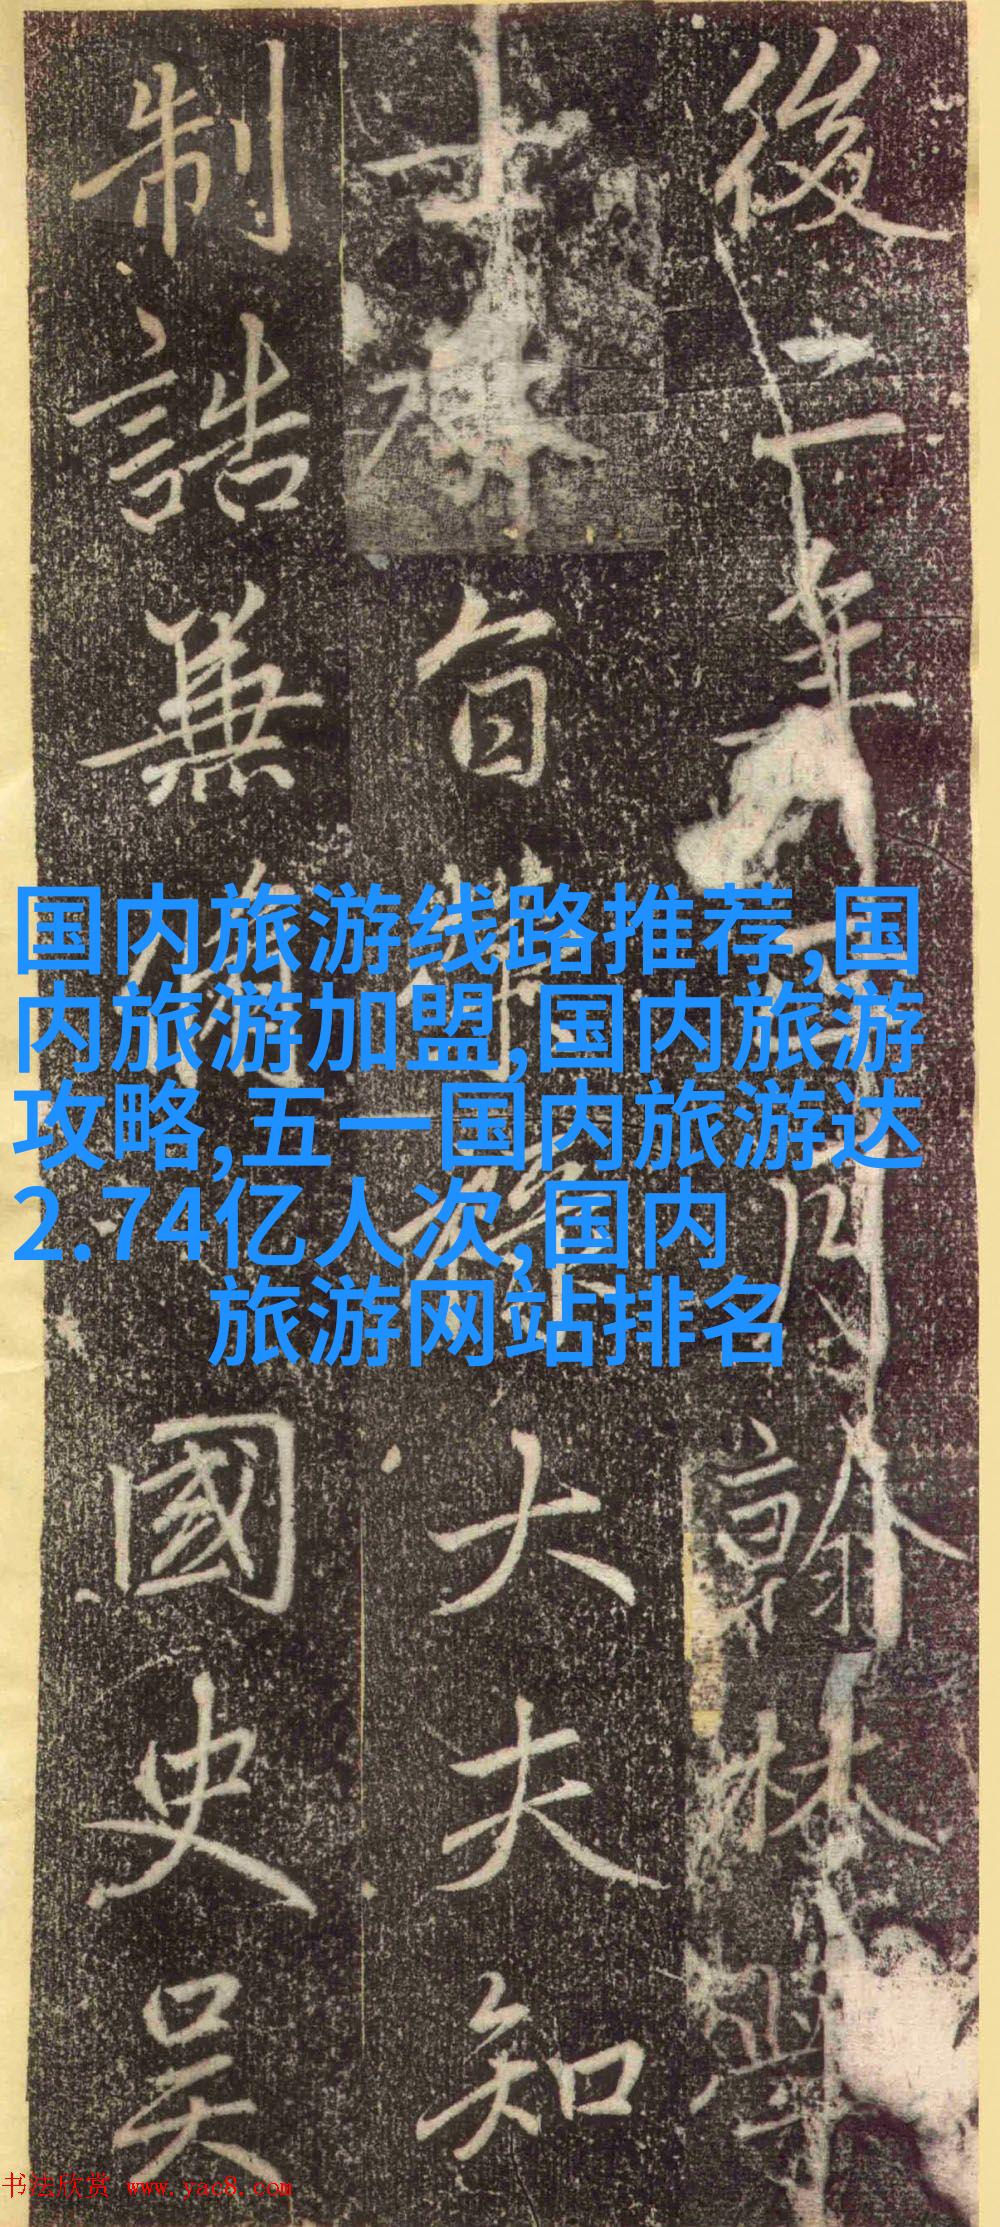 後二年月翰林學
士旨祿大夫知
制誥兼國史吴
国内旅游线路推荐,国
内旅游加盟,国内旅游
攻略,五一国内旅游达
2.74亿人次,国内
旅游网站排名
书法欣赏 www.yac8.com